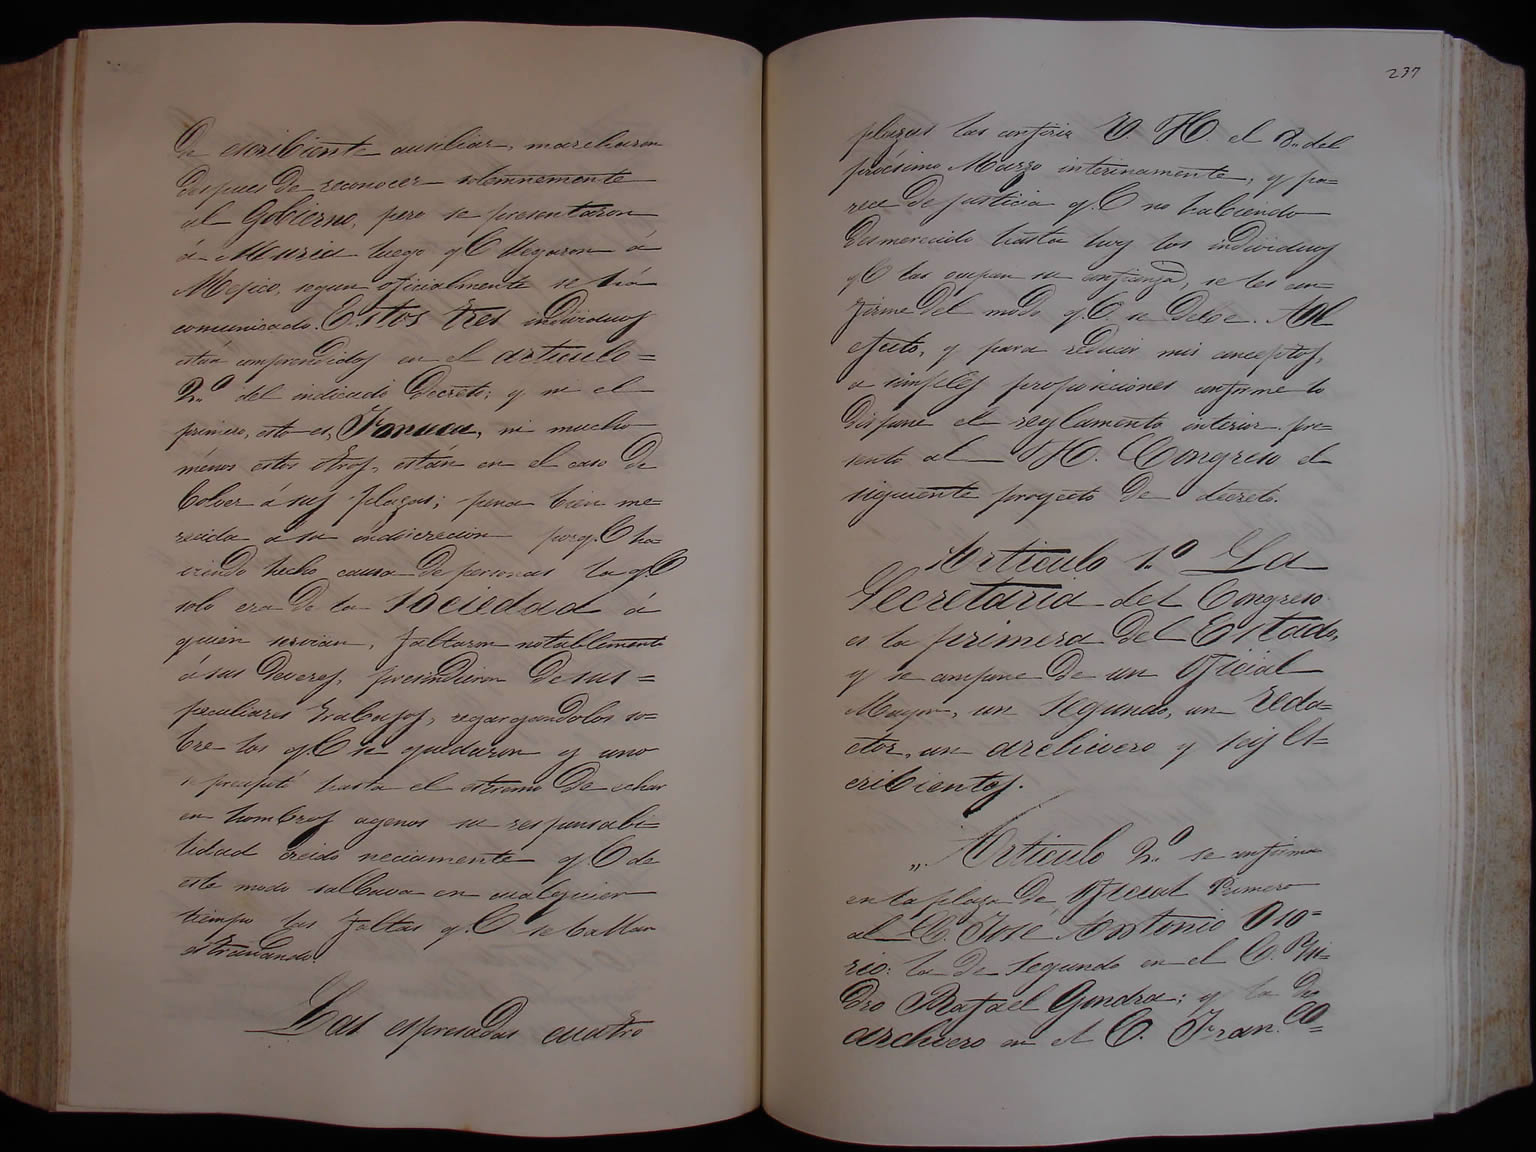 De escribiente ausiliar, marcharon
despues de reconocer solemnemente
al Gobierno, pero se presentaron
á Muzia luego qe llegaron á
Mejico, segun oficialmente se há
comunicado. Estos tres individuos
estan comprendidos en el articulo =
2.º del indicado Decreto; y ni el
primero, esto es, Fonseca, ni mucho
ménos estos otros, estan en el caso de
bolver á sus plazas; pena bien me=
recida á su indiscrecion porqe ha=
viendo hecho causa de personas la qe
solo era de la Sociedad á
quien servian, faltaron notablemente
á sus deveres, presindieron de sus =
peculiares trabajos, regargandolos so=
bre los qe se quedaron y uno
se hasta el estremo de echar
en hombros agenos su responsabi=
lidad creido neciamente qe de
este modo salbava en cualquier
tiempo las faltas qe se hallan
estrañando.
Las espresadas cuatro
237
plazas las confirió V. H. el 8.. del
procsimo Marzo interinamente, y pa=
rece de justicia qe no habiendo
desmerecido hasta hoy los individuos
qe las ocupan su confianza, se les con=
firme del modo qe se deve. Al
efecto, y para reducir mis conceptos,
a simples proposiciones conforme lo
dispone el reglamento interior pre=
sento al H. Congreso el
siguiente proyecto de decreto.
Articulo 1.º La
Secretaria del Congreso
es la primera del Estado,
y se compone de un Oficial
Mayor, un segundo, un reda=
ctor, un archivero y seis es=
cribientes.
„ Articulo 2.º se confirma
en la plaza de Oficial Primero
al C. José Antonio Oso=
rio: la de segundo en el C. Ysi=
dro Rafael Gondra; y la de
archivero en el C. Fran.co =